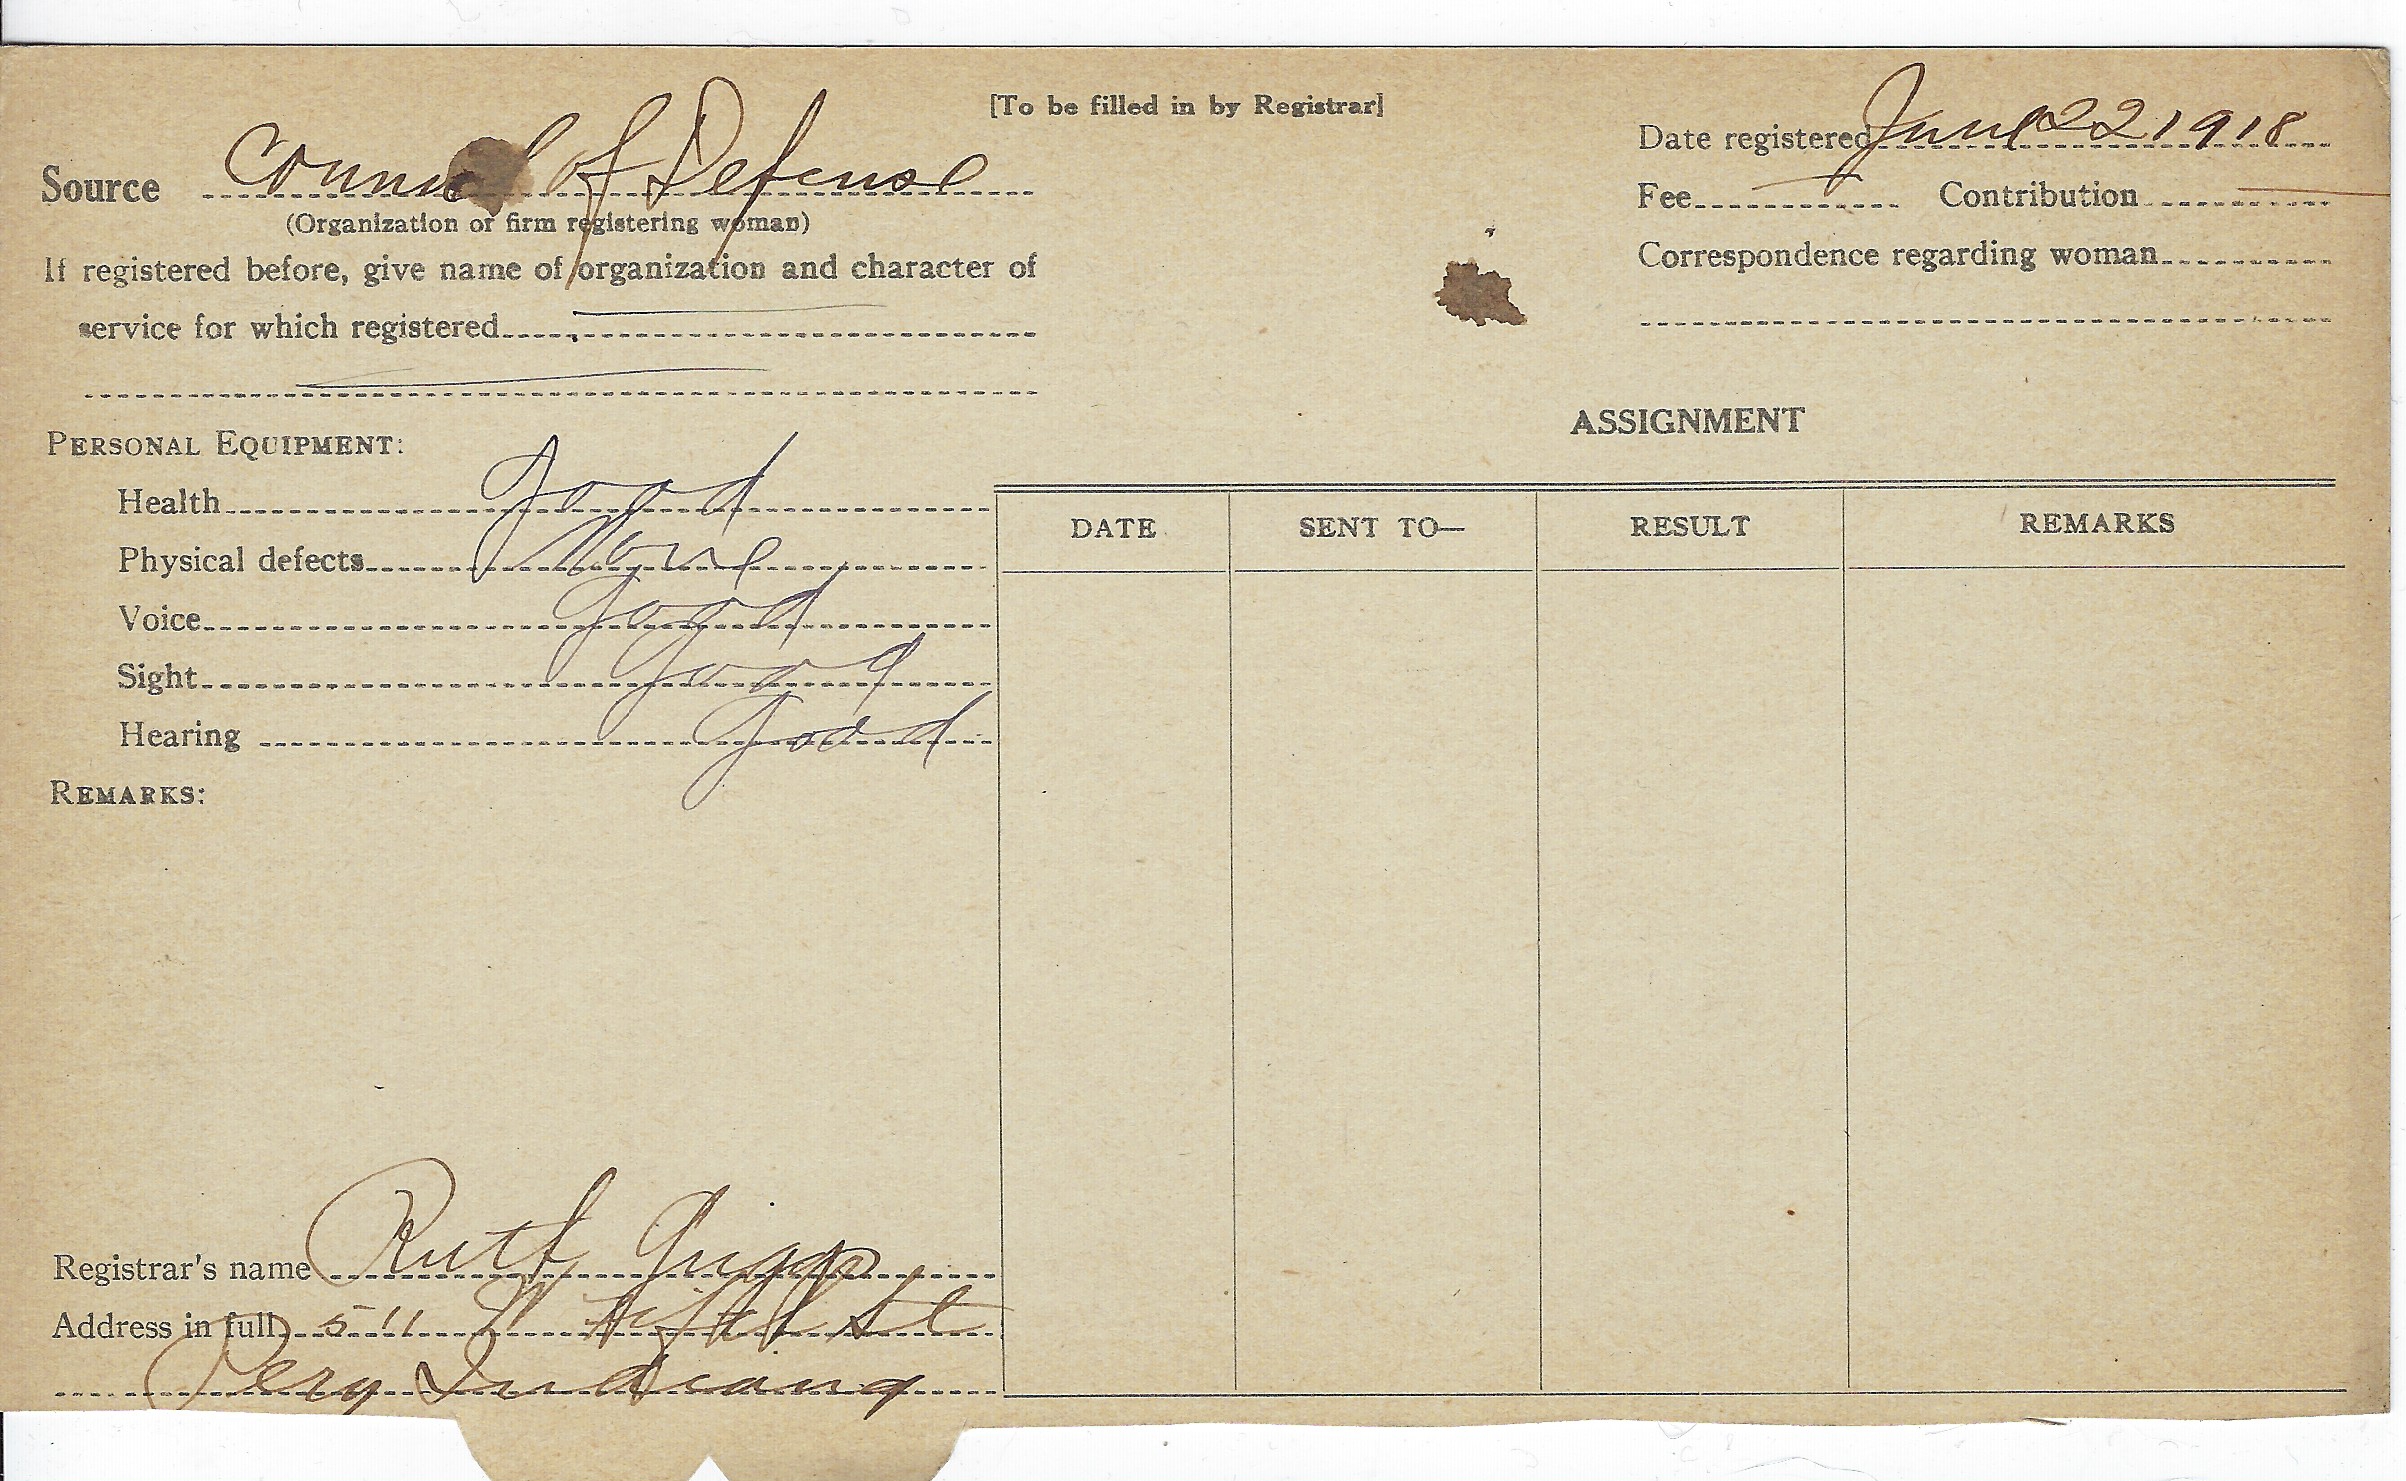 [To be filled in by Registrar]
Source Council of Defense
(Organization or firm registering woman)
If registered before, give name of organization and character of
service for which registered
Date registered June 22 1918
Fee Contribution
Correspondence regarding woman
PERSONAL EQUIPMENT:
Health Good
Physical defects None
Voice Good
Sight Good
Hearing Good
REMARKS:
ASSIGNMENT
DATE SENT TO— RESULT REMARKS
Registrar's name Ruth
Address in full 511 W Fifth St
Peru Indiana